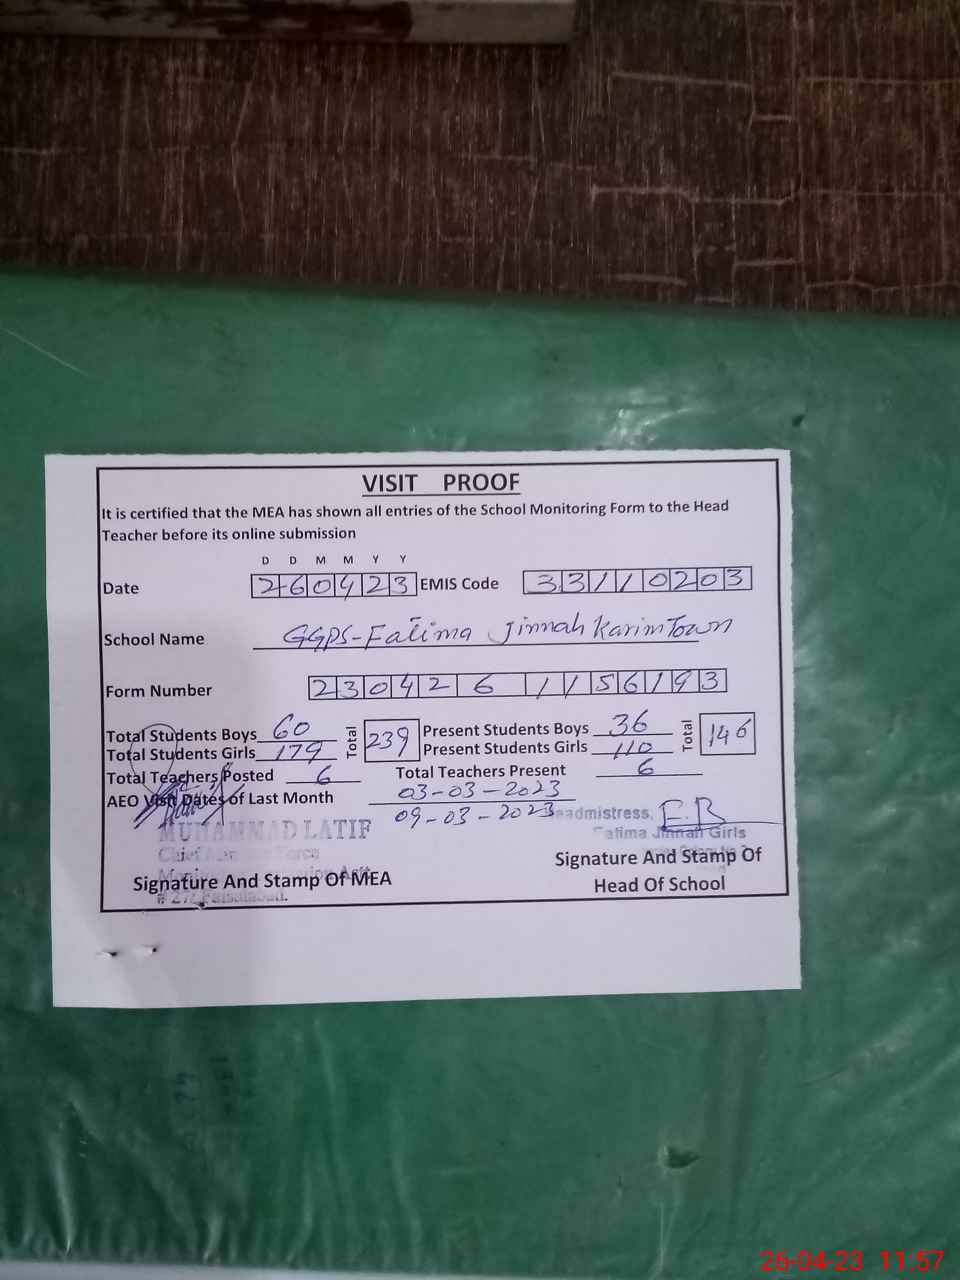 VISIT PROOF
It is certified that the MEA has shown all entries of the School Monitoring Form to the Head
Teacher before its online submission
D D M M Y Y
Date 260423 EMIS Code 33110203
School Name GGPS-Fatima Jinnah Karim Town
Form Number 230426 1156193
Total Students Boys 60 Total 239 Present Students Boys 36 Total 146
Total Students Girls 179 Present Students Girls 110
Total Teachers Posted 6 Total Teachers Present 6
AEO Visit Dates of Last Month 03-03-2023
09-03-2023
Headmistress,
Fatima Jinnah Girls
MUHAMMAD LATIF
Chief
Signature And Stamp Of MEA
Signature And Stamp Of
Head Of School
26-04-23 11:57